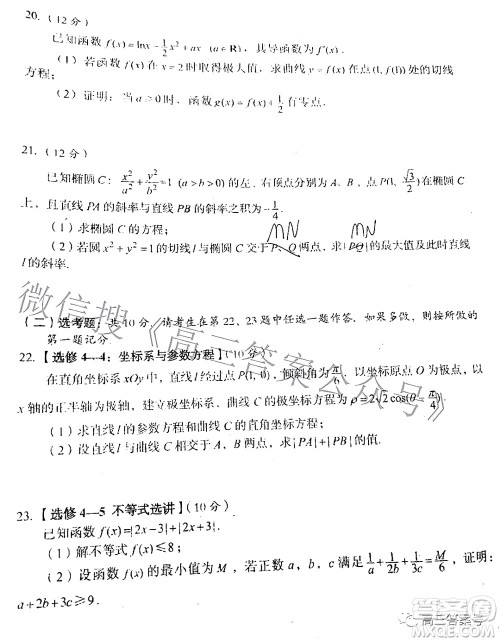 20. (12 分)
已知函数 f(x)=lnx-1/2x²+ax (a∈R), 其导函数为 f'(x).
(1) 若函数 f(x) 在 x=2 时取得极大值, 求曲线 y=f(x) 在点 (1, f(1)) 处的切线
方程;
(2) 证明: 当 a≥0 时, 函数 有零点.
21. (12 分)
已知椭圆 C: x²/a²+y²/b²=1 (a>b>0) 的左、右顶点分别为 A、B, 点 P(1, √3/2) 在椭圆 C
上, 且直线 PA 的斜率与直线 PB 的斜率之积为 -1/4.
(1) 求椭圆 C 的方程;
MN MN
(2) 若圆 x²+y²=1 的切线 l 与椭圆 C 交于 P、Q 两点, 求 的最大值及此时直线
l 的斜率.
(二) 选考题: 共 10 分. 请考生在第 22、23 题中任选一题作答. 如果多做, 则按所做的
第一题记分.
22. 【选修 4—4: 坐标系与参数方程】(10 分)
在直角坐标系 xOy 中, 直线 l 经过点 P(1, 0), 倾斜角为 π/6, 以坐标原点 O 为极点, 以
x 轴的正半轴为极轴, 建立极坐标方程, 曲线 C 的极坐标方程为 ρ=2√2cos(θ-π/4)
(1) 求直线 l 的参数方程与曲线 C 的直角坐标方程;
(2) 设直线 l 与曲线 C 相交于 A、B 两点, 求 |PA|+|PB| 的值.
23. 【选修 4—5 不等式选讲】(10 分)
已知函数 f(x)=|2x-3|+|2x+3|.
(1) 解不等式 f(x)≤8;
(2) 设函数 f(x) 的最小值为 M, 若正数 a、b、c 满足 1/a+1/2b+1/3c=M/6, 证明:
a+2b+3c≥9.
微信搜《高三答案公众号》
高三答案号